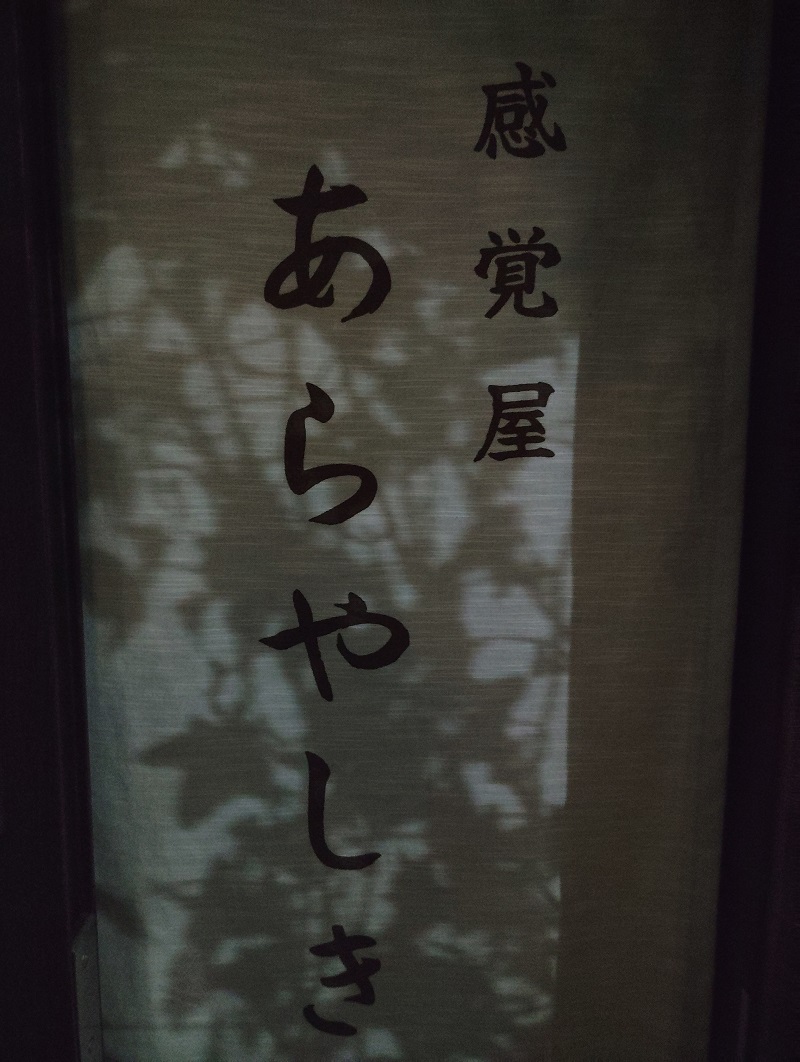 感覚屋
あらやしき